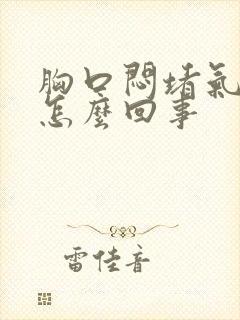 胸口悶堵氣
怎麼回事
雷佳音